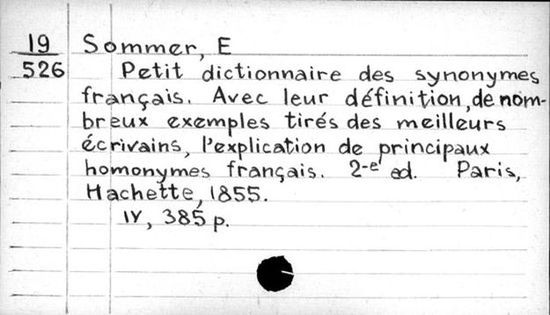 19 Sommer, E
526 Petit dictionnaire des synonymes
français. Avec leur définition, de nom-
breux exemples tirés des meilleurs
écrivains, l'explication de principaux
homonymes français. 2-e ed. Paris,
Hachette, 1855.
IV, 385 p.